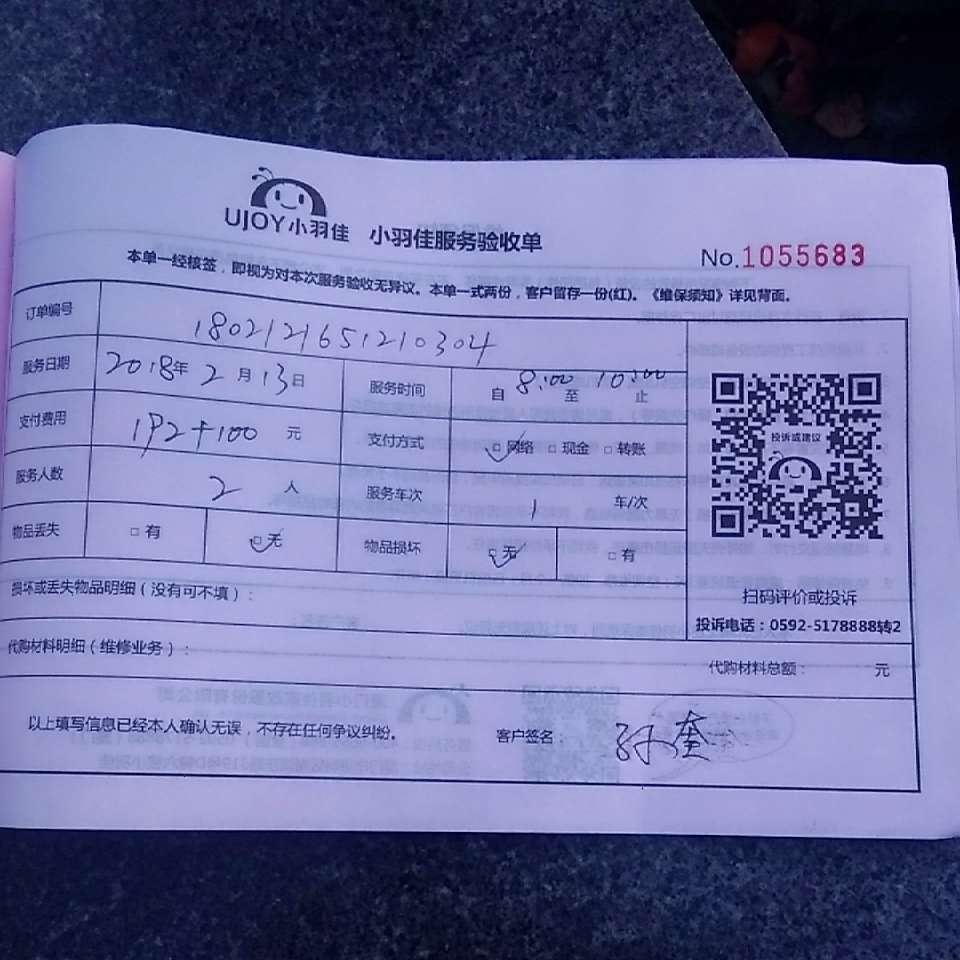 UJOY小羽佳 小羽佳服务验收单
No.1055683
本单一经核签，即视为对本次服务验收无异议。本单一式两份，客户留存一份(红)。《维保须知》详见背面。
订单编号 1802121651210304
服务日期 2018年2月13日 服务时间 自8:00至10:00止
支付费用 192+100元 支付方式 □网络 □现金 □转账
投诉或建议
服务人数 2人 服务车次 1车/次
物品丢失 □有 □无 物品损坏 □无 □有
损坏或丢失物品明细（没有可不填）：
扫码评价或投诉
投诉电话：0592-5178888转2
代购材料明细（维修业务）：
代购材料总额： 元
以上填写信息已经本人确认无误，不存在任何争议纠纷。 客户签名：孙奎